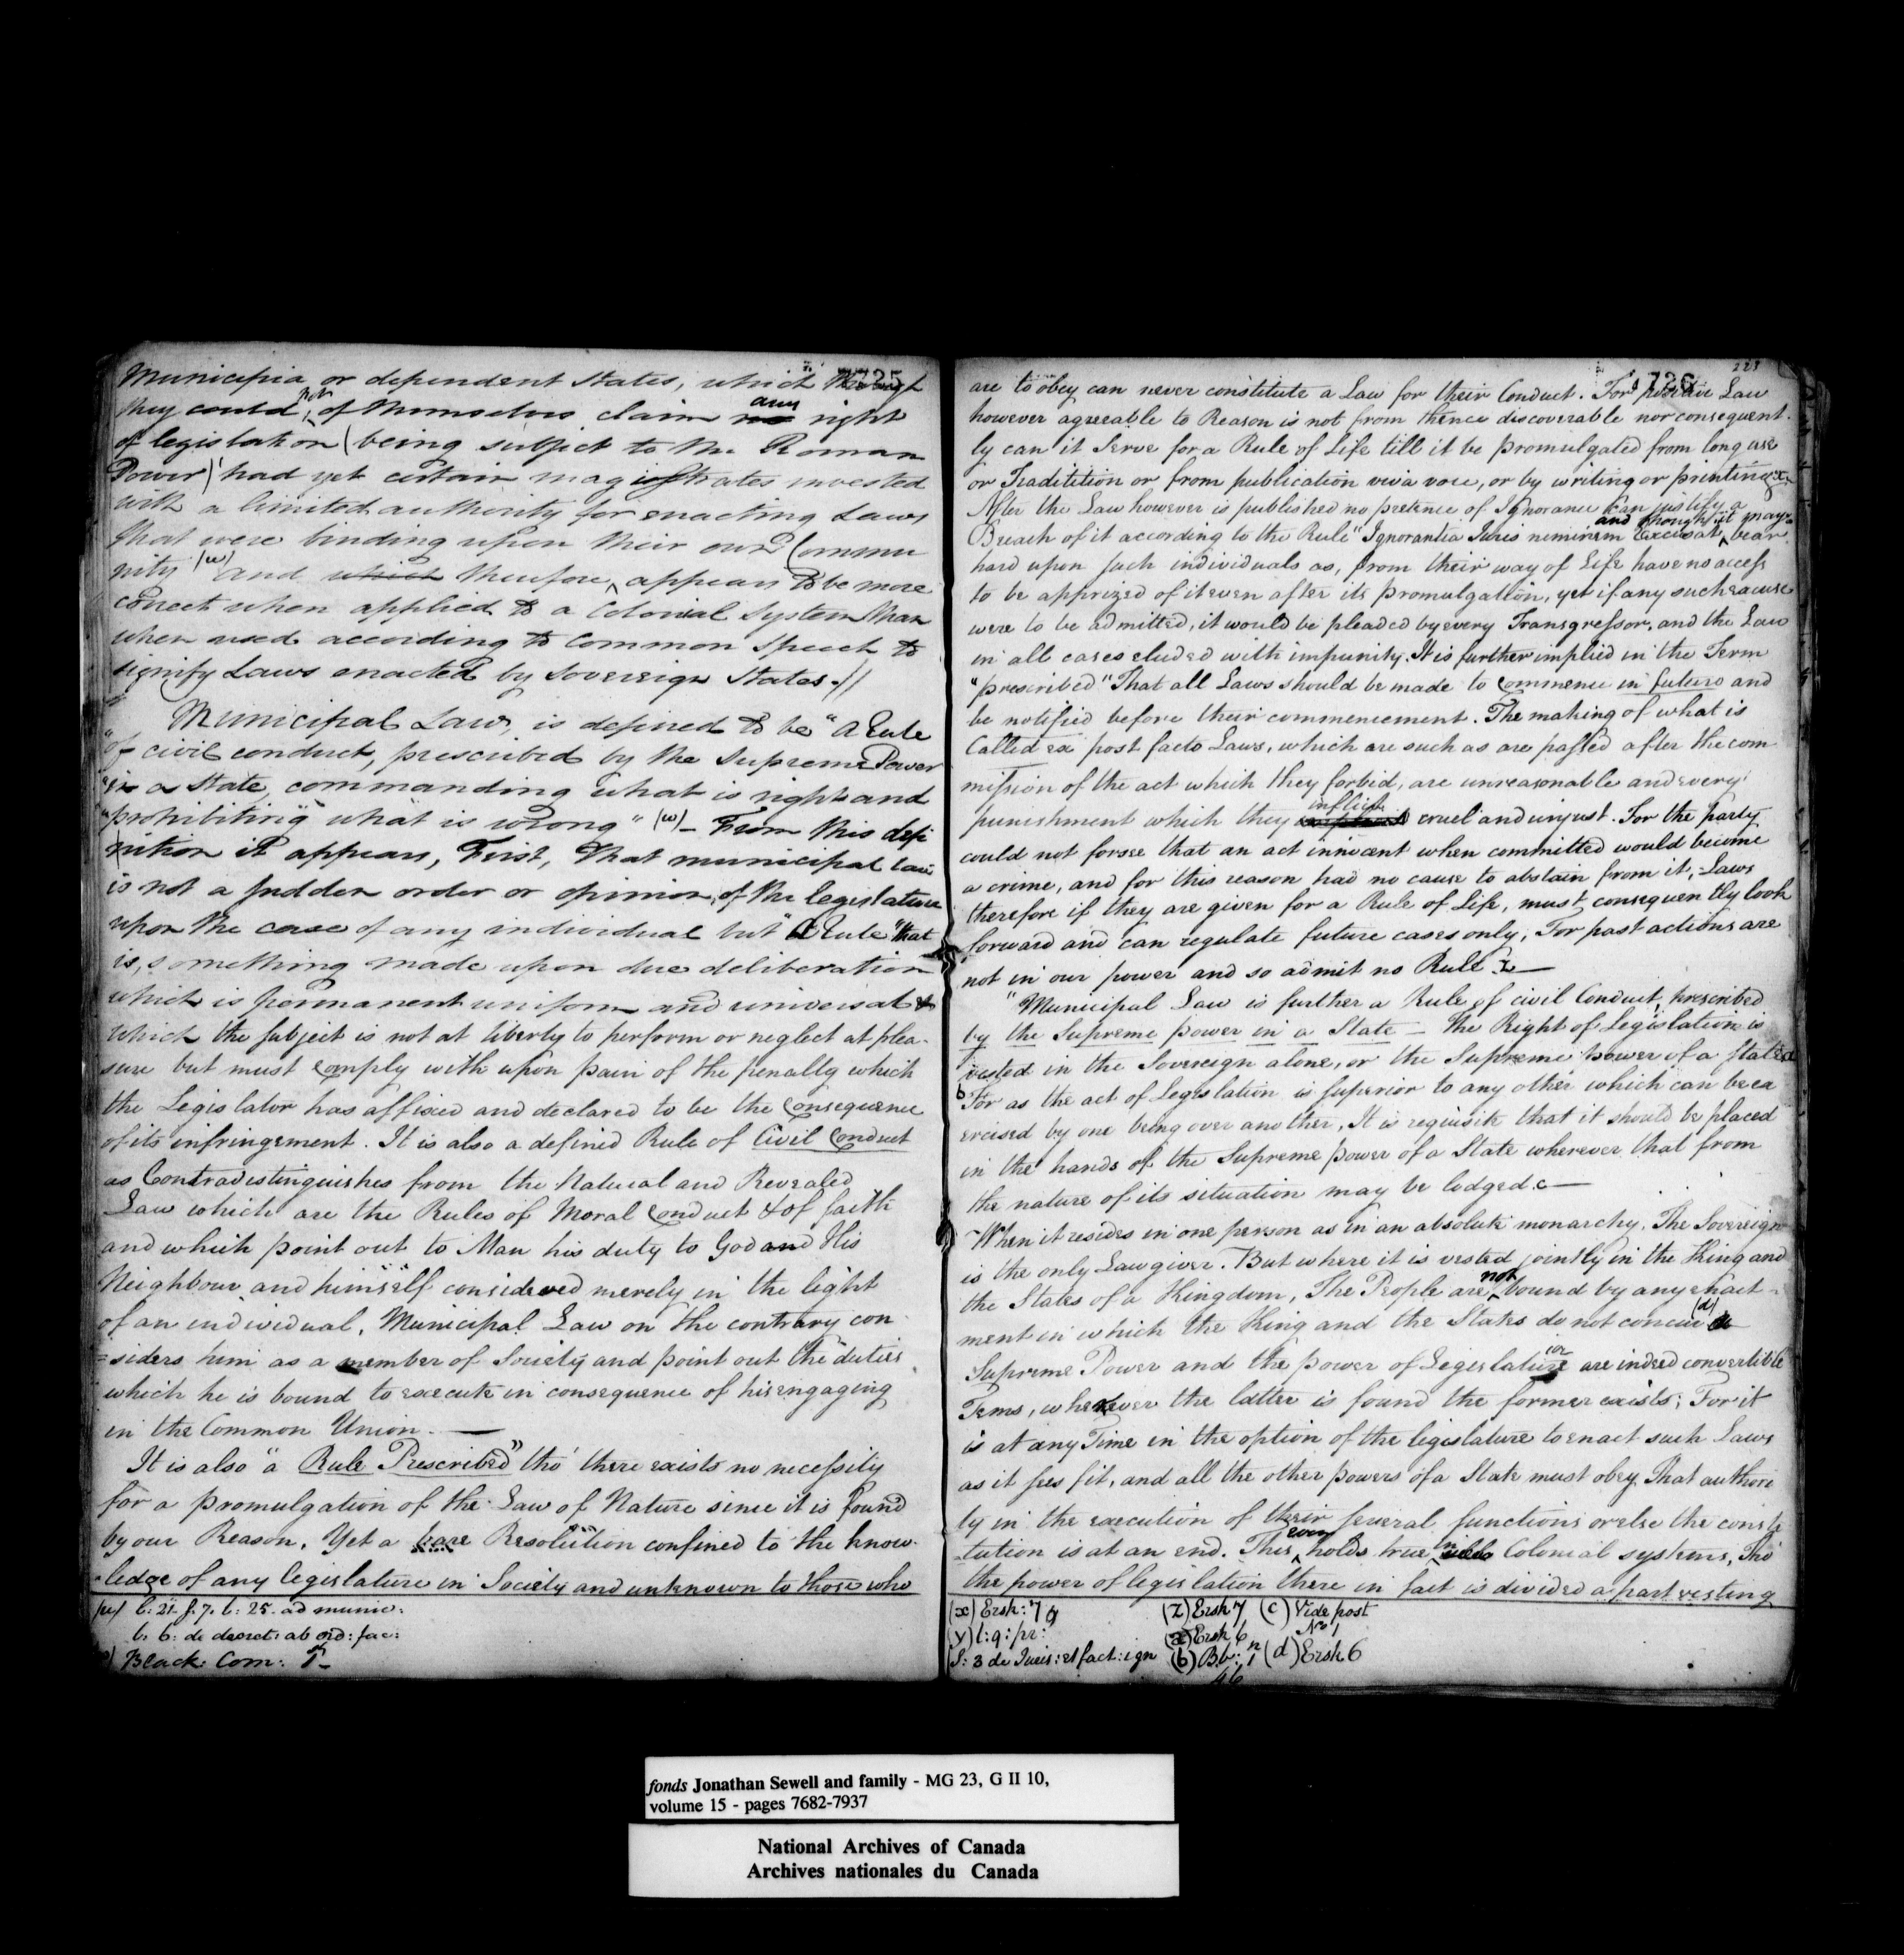 7725
Municipia or dependent States, which though
they could not, of themselves claim no any right
of legislation (being subject to the Roman
Power) had yet certain magistrates invested
with a limited authority for enacting Laws
that were binding upon their own Commu
nity (u) and which therefore, appears to be more
correct when applied to a Colonial System than
when used according to common speech to
signify Laws enacted by Sovereign States.//
Municipal Law, is defined to be "a Rule
"of civil conduct, prescribed by the Supreme Power
"in a State, commanding what is right and
"prohibiting what is wrong" (w) – From this defi
nition it appears, First, That municipal law
is not a sudden order or opinion, of the legislature
upon the case of any individual but "a Rule" that
is, something made upon due deliberation
which is permanent uniform and universal &
which the subject is not at liberty to perform or neglect at plea-
sure but must comply with upon pain of the penalty which
the Legislator has affixed and declared to be the Consequence
of its infringement. It is also a defined Rule of Civil Conduct
as Contradistinguishes from the Natural and Revealed
Law which are the Rules of Moral Conduct & of faith
and which point out to Man his duty to God and His
Neighbour and himself considered merely in the light
of an individual. Municipal Law on the contrary con
=siders him as a member of Society and point out the duties
which he is bound to execute in consequence of his engaging
in the Common Union. —
It is also "a Rule Prescribed" tho' there exists no necessity
for a promulgation of the Law of Nature since it is found
by our Reason. Yet a bare Resolution confined to the know-
-ledge of any legislature in Society and unknown to those who
l: 21. s. 7. l: 25. ad munic:
l. 6: de decret: ab ord: fac:
Black: Com:
7726
223
are to obey can never constitute a Law for their Conduct. For positive Law
however agreeable to Reason is not from thence discoverable nor consequent-
ly can it Serve for a Rule of Life till it be promulgated from long use
or Tradition or from publication viva voce, or by writing or printing x.
After the Law however is published no pretence of Ignorance can justify a
Breach of it according to the Rule "Ignorantia Juris neminem Excusat, and though it may bear
hard upon such individuals as, from their way of Life have no access
to be apprized of it even after its promulgation, yet if any such excuse
were to be admitted, it would be pleaded by every Transgressor, and the Law
in all cases eluded with impunity. It is further implied in the Term
"prescribed" That all Laws should be made to Commence in futuro and
be notified before their commencement. The making of what is
Called ex post facto Laws, which are such as are passed after the com
mission of the act which they forbid, are unreasonable and every
punishment which they inflict cruel and unjust. For the party
could not forsee that an act innocent when committed would become
a crime, and for this reason had no cause to abstain from it, Laws
therefore if they are given for a Rule of Life, must consequently look
forward and can regulate future cases only; For past actions are
not in our power and so admit no Rule z —
"Municipal Law is further a Rule of civil Conduct, prescribed
by the Supreme power in a State — The Right of Legislation is
vested in the Sovereign alone, or the Supreme power of a State a
b For as the act of Legislation is superior to any other which can be ex
ercised by one being over another, It is requisite that it should be placed
in the hands of the Supreme power of a State wherever that from
the nature of its situation may be lodged. c —
When it resides in one person as in an absolute monarchy, The Sovereign
is the only Lawgiver. But where it is vested jointly in the King and
the States of a Kingdom, The People are not bound by any enact-
ment in which the King and the States do not concur (d)
Supreme Power and the power of Legislation are indeed convertible
Terms, wherever the latter is found the former exists; For it
is at any Time in the option of the legislature to enact such Laws
as it sees fit, and all the other powers of a State must obey That authori
ty in the execution of their several functions or else the consti
tution is at an end. This even holds true in Colonial systems, Tho'
the power of legislation there in fact is divided a part vesting
(x) Ersk: 7
(y) l: 9: pr:
S: 3 de Juris: et fact: ign
(z) Ersk 7
(a) Ersk 6
(b) Bb: 1
46
(c) Vide post
No 1
(d) Ersk 6
fonds Jonathan Sewell and family - MG 23, G II 10,
volume 15 - pages 7682-7937
National Archives of Canada
Archives nationales du Canada